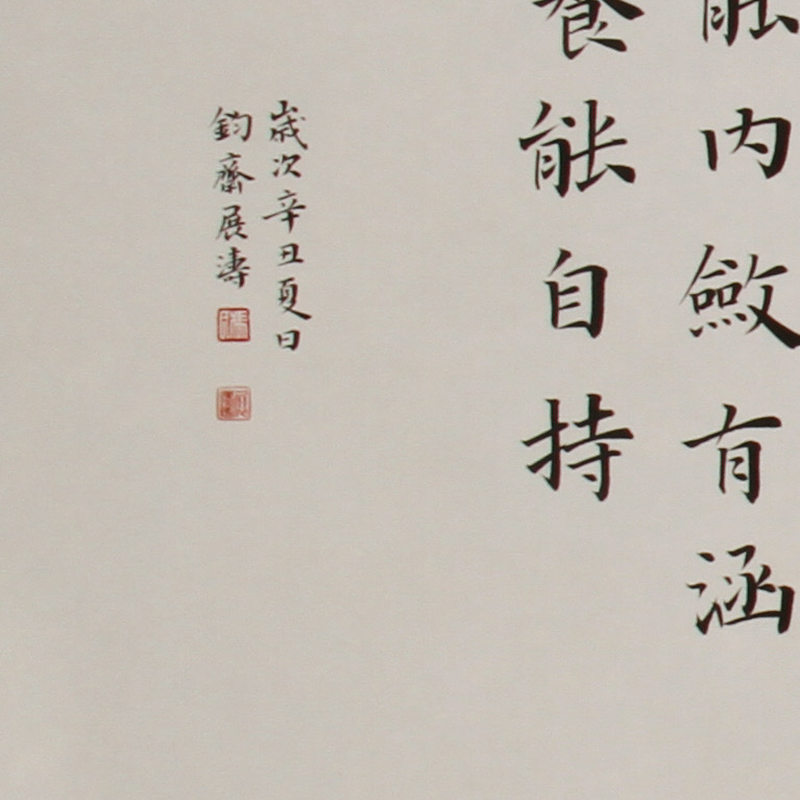 能内斂有涵
養能自持
歲次辛丑夏日
鈞齋展濤